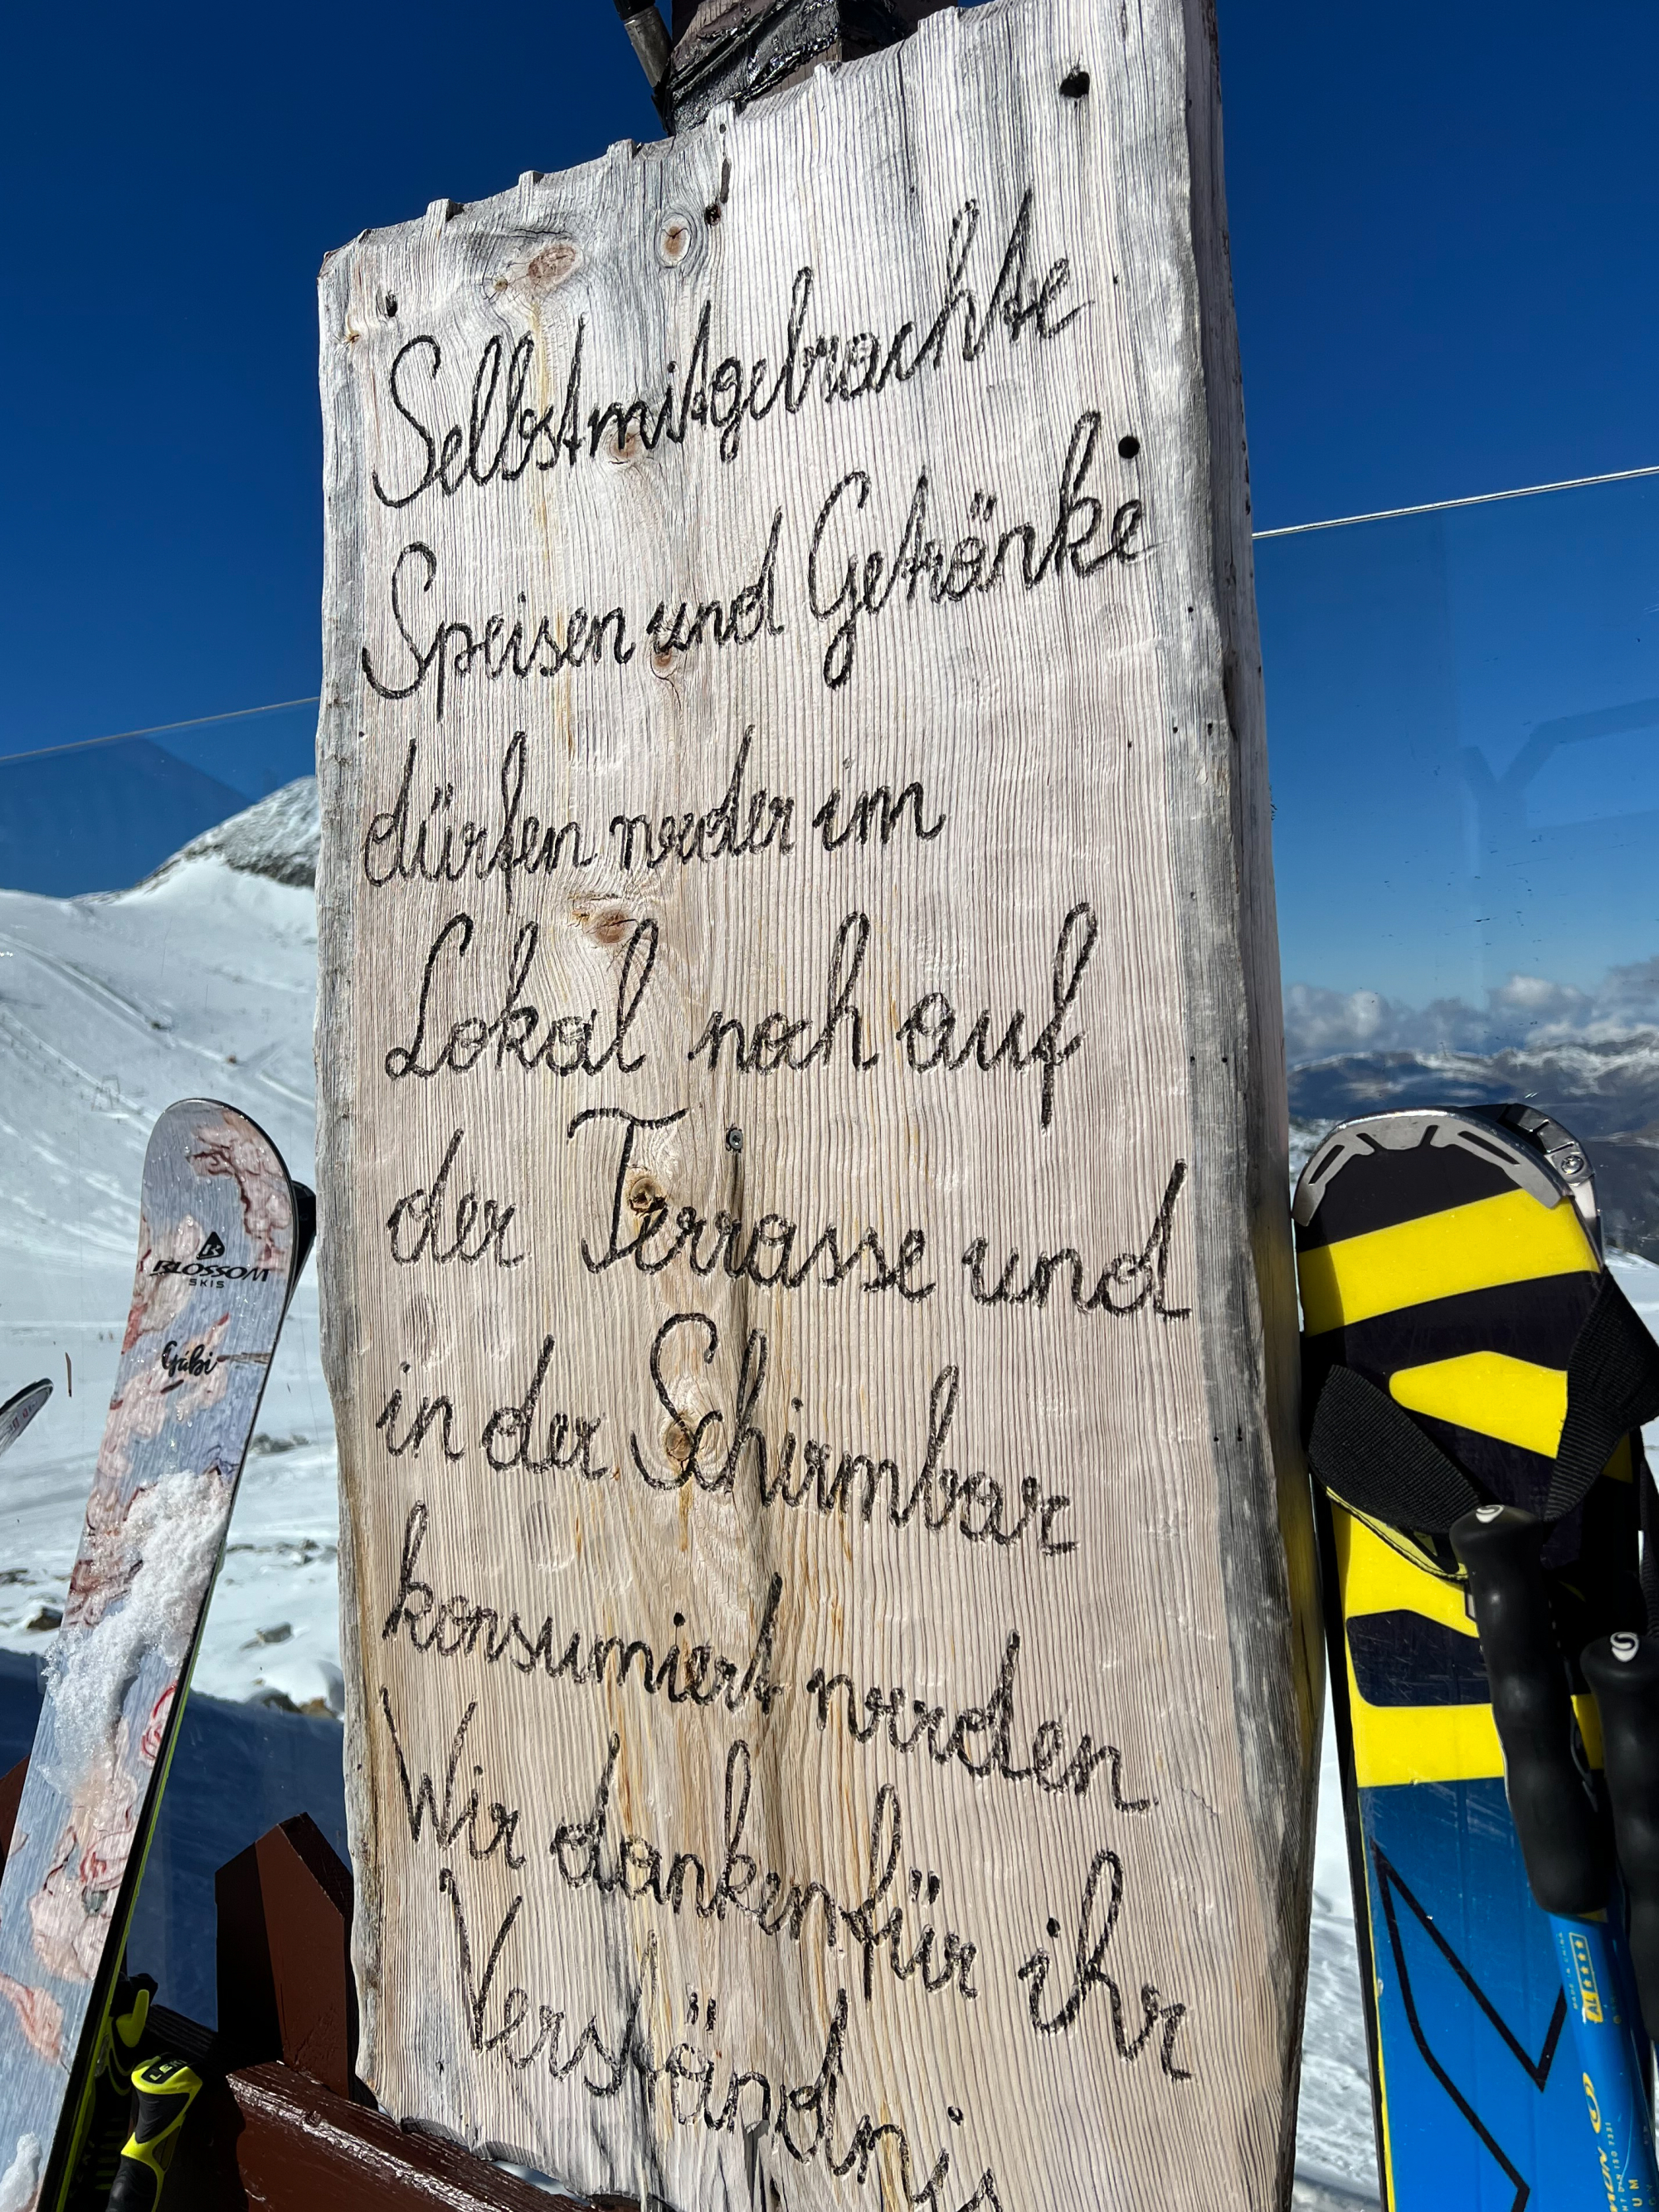 Selbstmitgebrachte
Speisen und Getränke
dürfen weder im
Lokal noch auf
der Terrasse und
in der Schirmbar
konsumiert werden
Wir danken für ihr
Verständnis
BLOSSOM
SKIS
Gabi